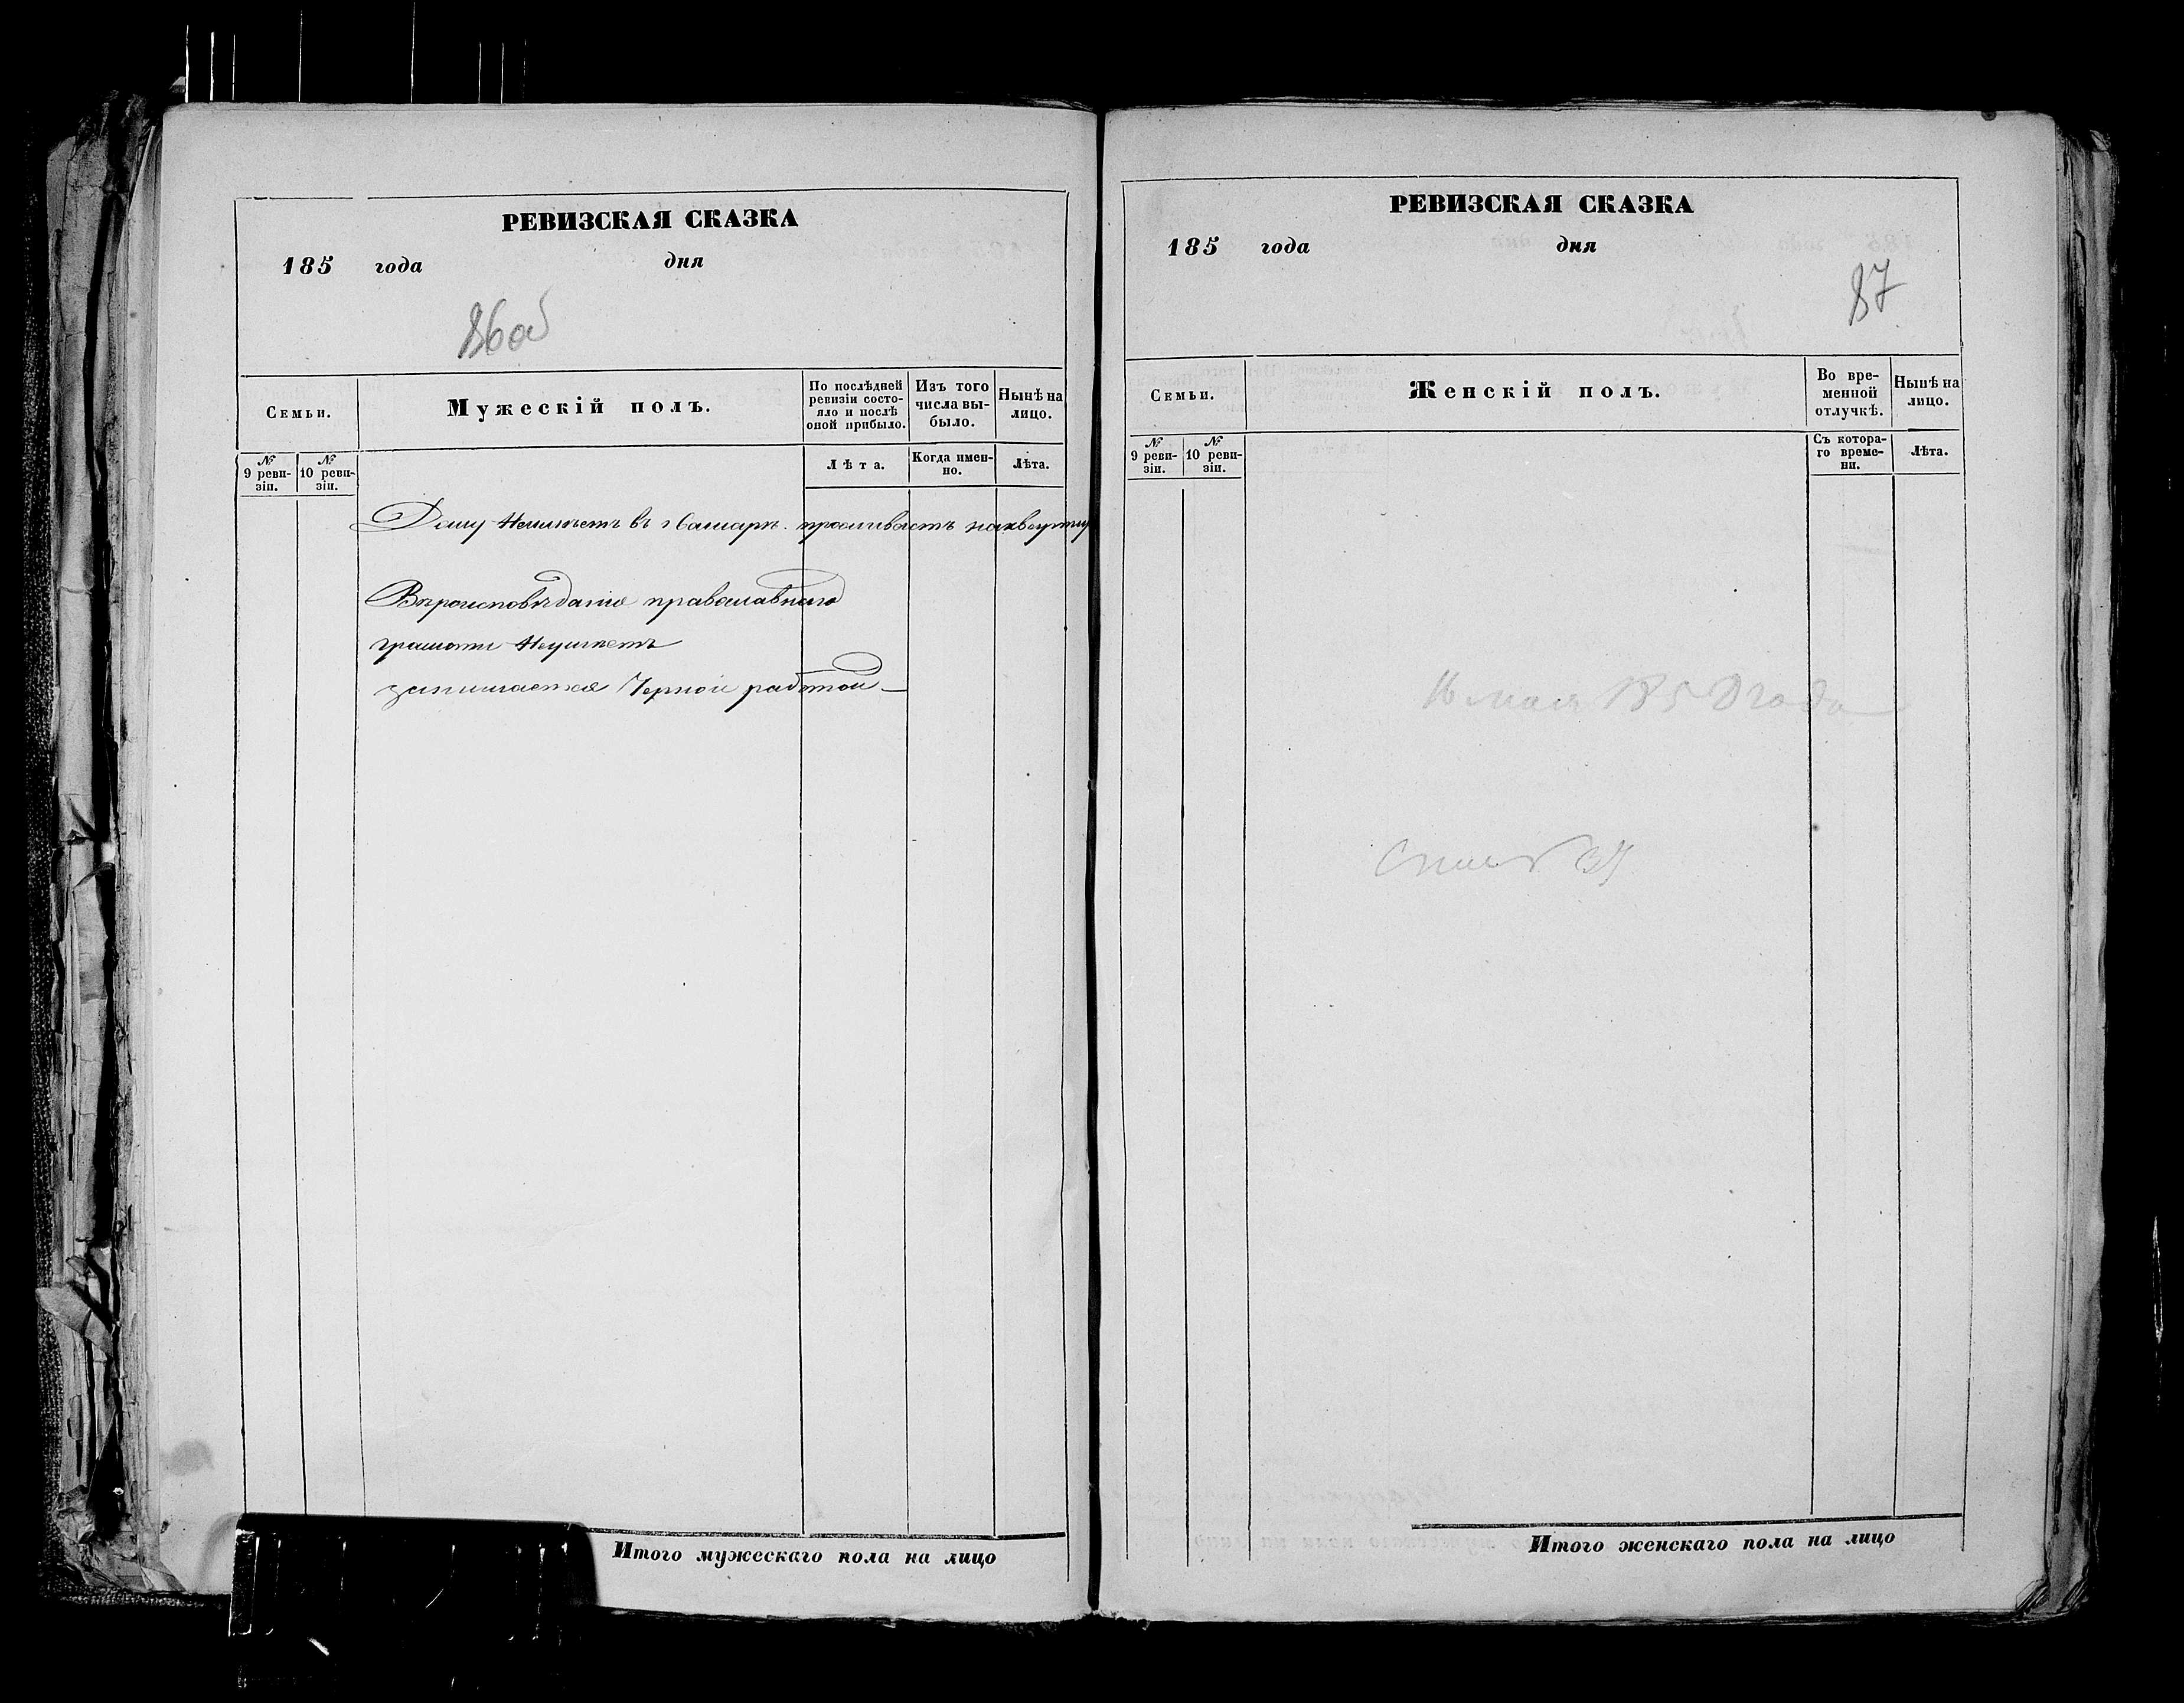 РЕВИЗСКАЯ СКАЗКА
185 года дня
86об
Семьи.
Мужескій полъ.
По послѣдней ревизіи состо-
яло и послѣ
оной прибыло.
Изъ того
числа вы-
было.
Нынѣ на
лицо.
№
9 реви-
зіи.
№
10 реви-
зіи.
Лѣта.
Когда имен-
но.
Лѣта.
Дому Неимѣетъ въ г Самарѣ. проживаетъ наквартиру
Вѣроисповѣданія православнаго
грамоти Неумѣетъ
занимается Черной работой
Итого мужескаго пола на лицо
РЕВИЗСКАЯ СКАЗКА
185 года дня
87
Семьи.
Женскій полъ.
Во вре-
менной
отлучкѣ.
Нынѣ на
лицо.
№
9 реви-
зіи.
№
10 реви-
зіи.
Съ котора-
го време-
ни.
Лѣта.
16 мая 1858 года
Итого женскаго пола на лицо